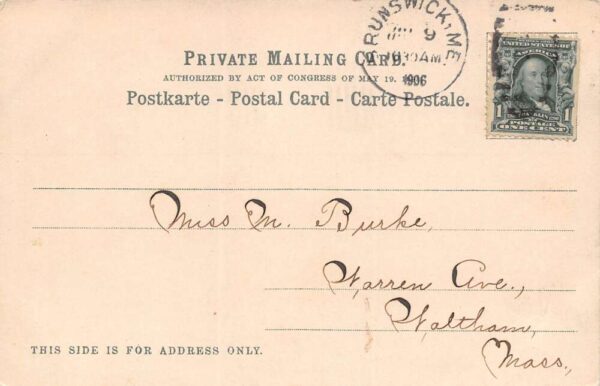 BRUNSWICK, ME.
9
1906
PRIVATE MAILING CARD.
AUTHORIZED BY ACT OF CONGRESS OF MAY 19,
Postkarte - Postal Card - Carte Postale.
UNITED STATES OF
AMERICA
1 1
FRANKLIN
POSTAGE
ONE CENT
Miss M. Burke,
Warren Ave.,
Waltham,
Mass.,
THIS SIDE IS FOR ADDRESS ONLY.